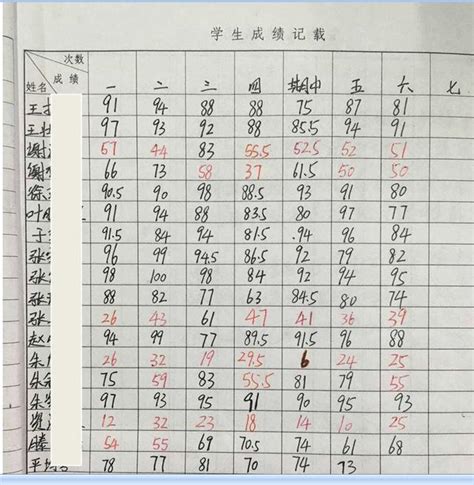 学生成绩记载
次数
成绩
姓名 一 二 三 四 期中 五 六 七
王 91 94 88 88 75 87 81
王 97 93 92 88 85.5 94 91
谢 57 44 83 55.5 52.5 52 51
谢 66 73 58 37 61.5 50 50
徐 90.5 90 98 88.5 93 91 80
叶 91 94 88 83.5 80 97 77
子 91.5 84 94 81.5 94 96 84
张 96 99 94.5 86.5 92 79 82
张 98 100 98 84 92 94 95
张 88 82 77 63 84.5 80 74
张 26 43 61 47 41 36 39
赵 94 99 77 89.5 91.5 96 88
朱 26 32 19 29.5 6 24 25
朱 75 59 83 55.5 81 79 55
朱 97 93 95 91 90 95 93
12 32 23 18 14 10 25
滕 54 55 69 70.5 74 61 68
平均 78 77 81 70 74 73